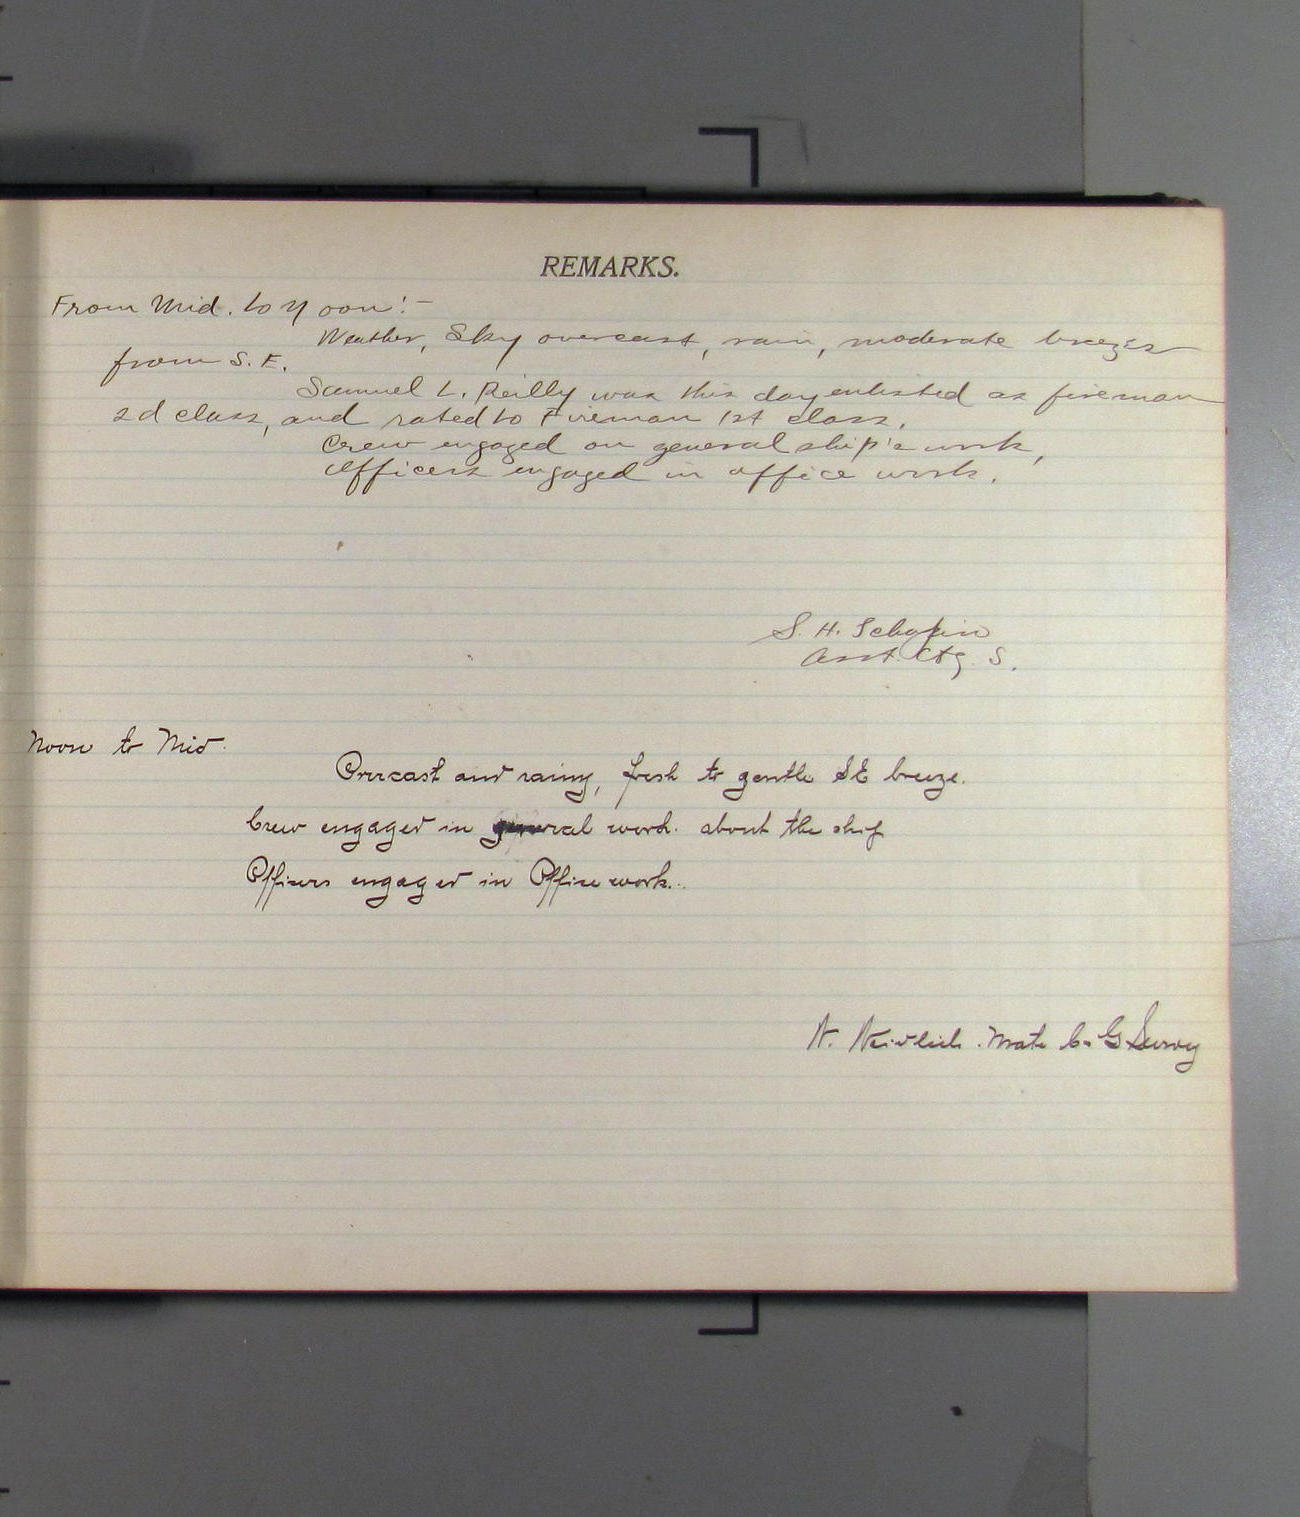 REMARKS.
From Mid. to Noon:-
Weather, Sky overcast, rain, moderate breezes
from S. E.
Samuel L. Reilly was this day enlisted as fireman
2d class, and rated to Fireman 1st class.
Crew engaged on general ship's work,
Officers engaged in office work.
S. H.
Asst. C & G. S.
Noon to Mid.
Overcast and rainy, fresh to gentle SE breeze.
Crew engaged in general work. about the ship
Officers engaged in Office work.
Mate C. G Survey